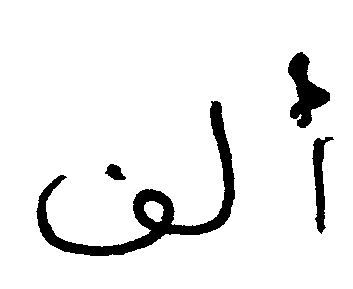 ألف